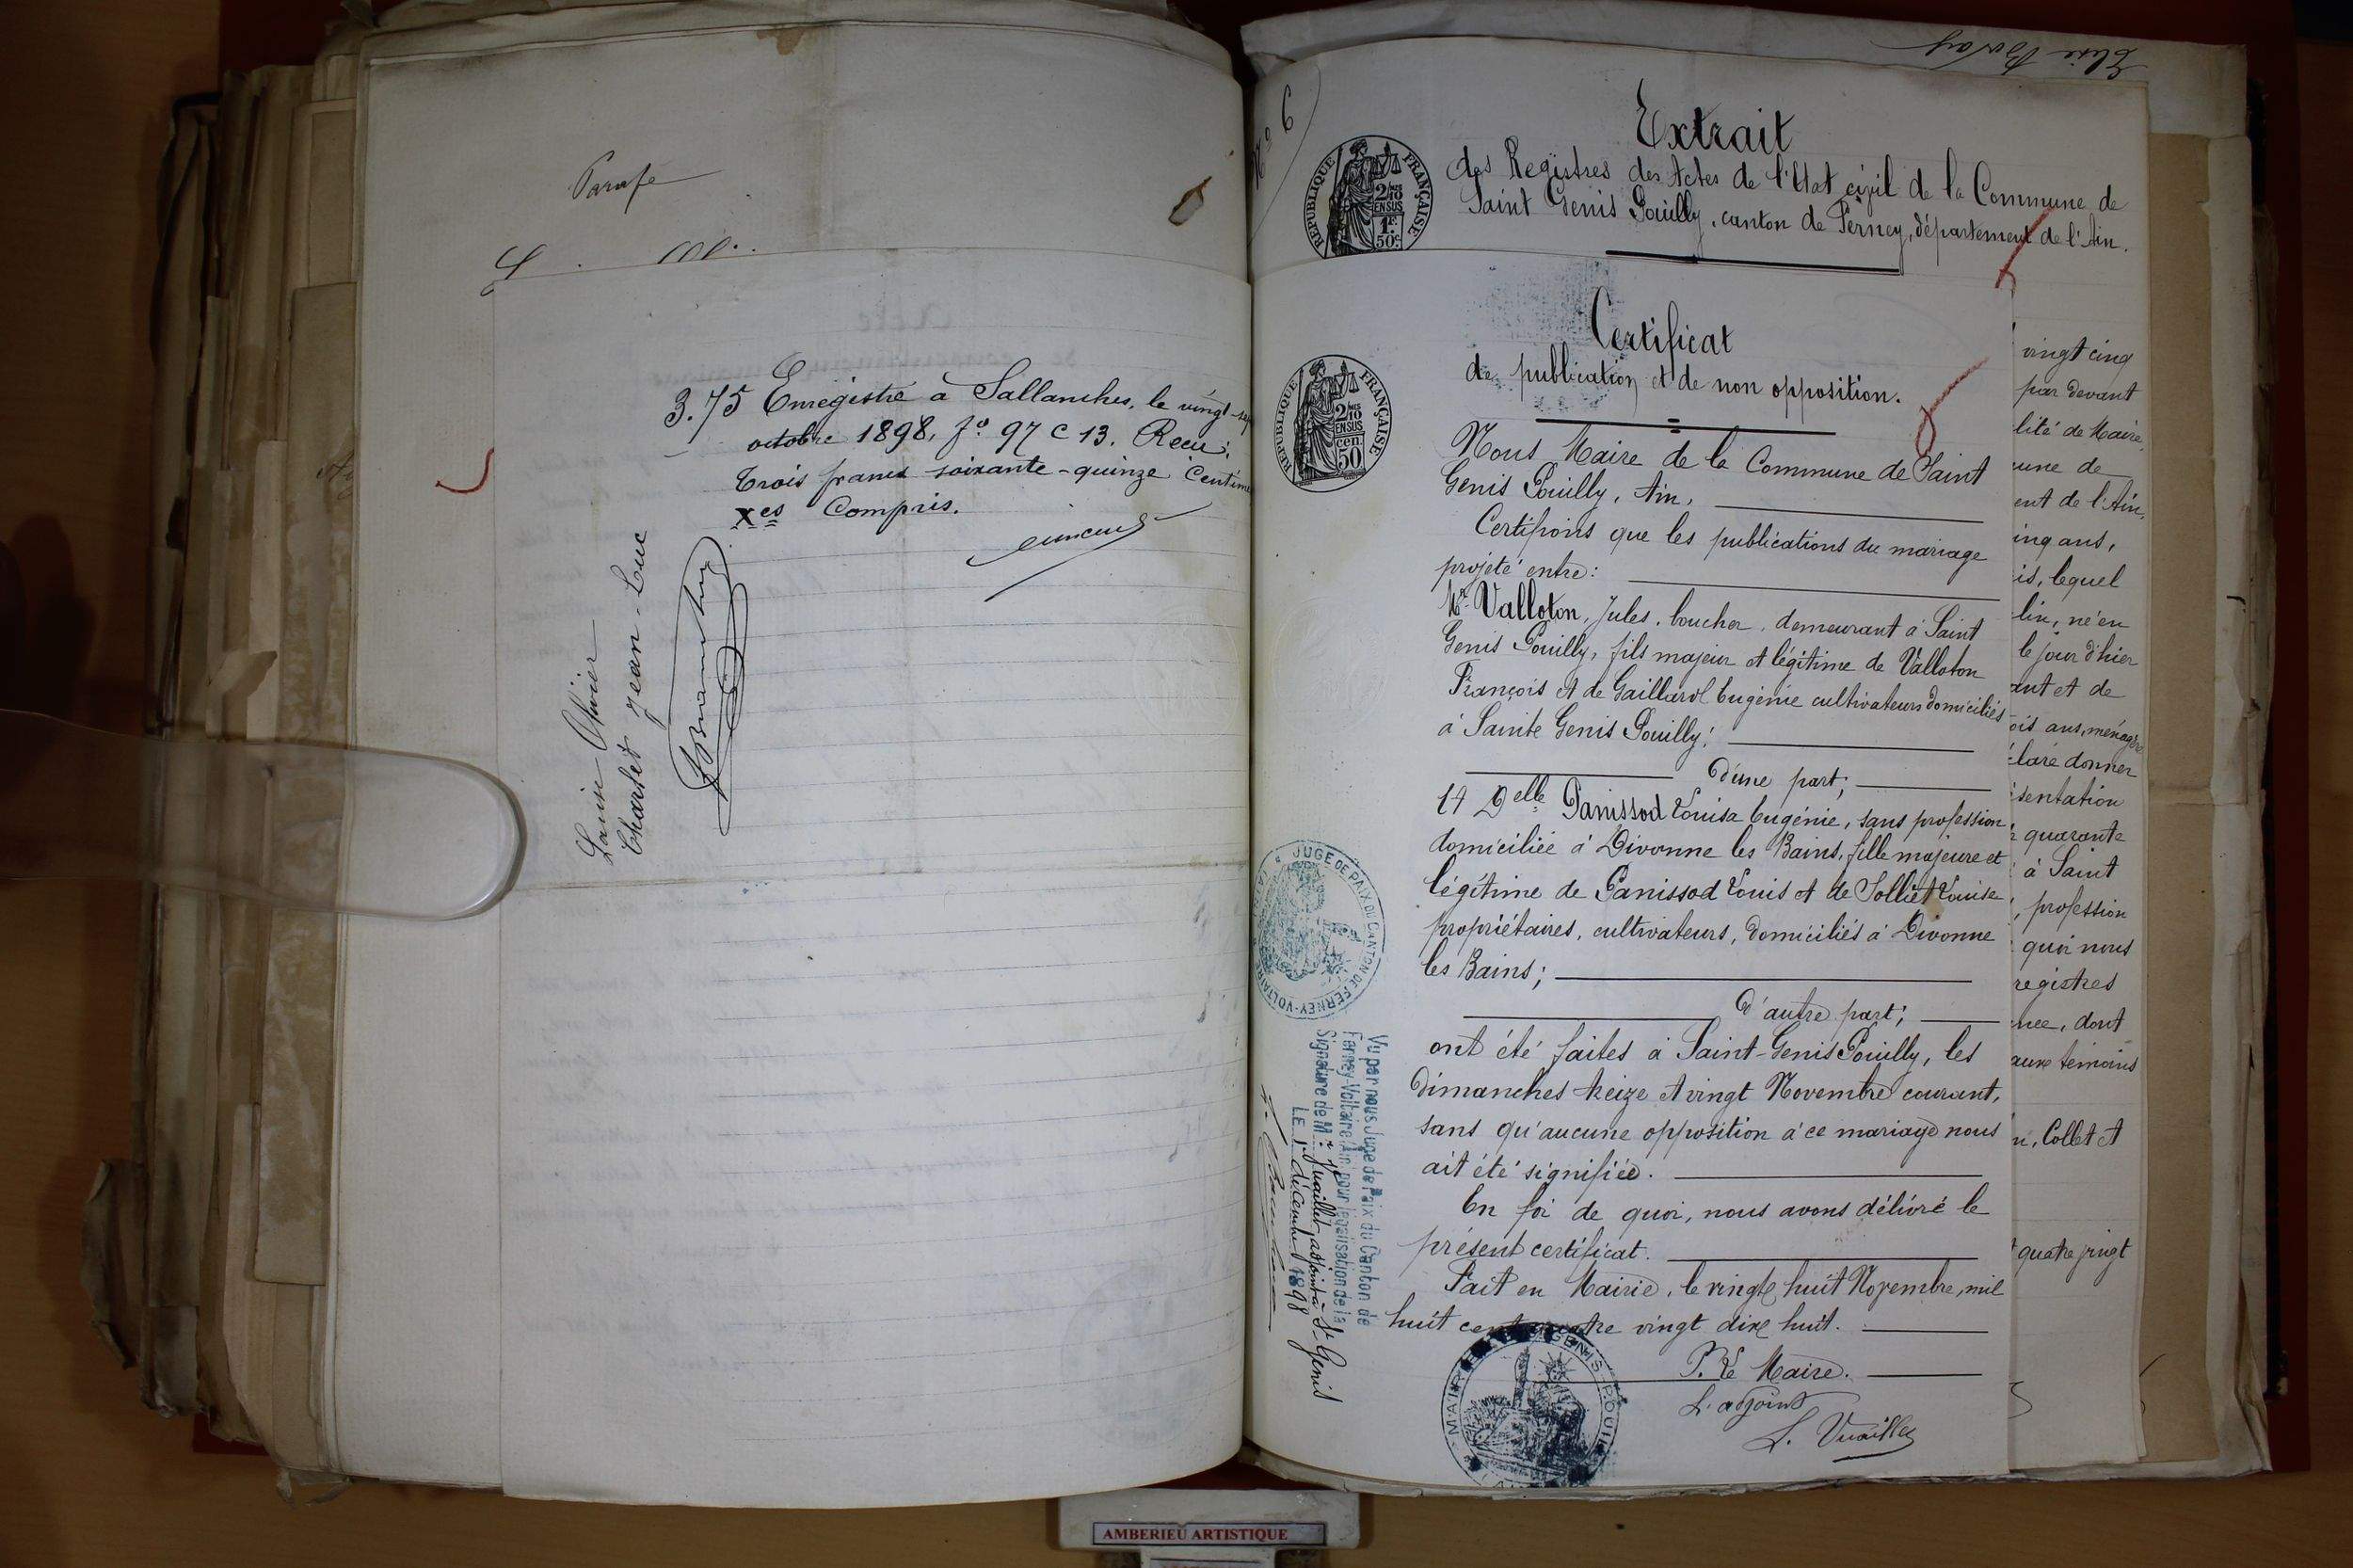 Parafe
3.75 Enregistré à Sallanches, le vingt-sep
octobre 1898, fo. 97 C 13. Reçu:
Trois francs soixante-quinze Centimes
Xes Compris.
Louise
Charlet Jean-Luc
No 6
Extrait
des Registres des Actes de l'Etat civil de la Commune de
Saint Genis Pouilly, canton de Ferney, département de l'Ain.
REPUBLIQUE FRANÇAISE
2/10 EN SUS
1F. 50c
Certificat
de publication et de non opposition.
REPUBLIQUE FRANÇAISE
2/10 EN SUS
cen 50
Nous Maire de la Commune de Saint
Genis Pouilly, Ain,
Certifions que les publications du mariage
projeté entre:
Mr. Valloton, Jules, boucher, demeurant à Saint
Genis Pouilly, fils majeur et légitime de Valloton
François et de Gaillard Eugénie cultivateurs domiciliés
à Sainte Genis Pouilly;
D'une part;
Et Delle Panissod Louisa Eugénie, sans profession,
domiciliée à Divonne les Bains, fille majeure et
légitime de Panissod Louis et de Solliet Louise
propriétaires, cultivateurs, domiciliés à Divonne
les Bains;
D'autre part;
ont été faites à Saint-Genis Pouilly, les
dimanches treize et vingt Novembre courant,
sans qu'aucune opposition à ce mariage nous
ait été signifiée.
En foi de quoi, nous avons délivré le
présent certificat.
Fait en Mairie, le vingt huit Novembre, mil
huit cent quatre vingt dix huit.
P. Le Maire.
L'adjoint
L. Vuaillet
MAIRIE DE ST GENIS-POUILLY
JUGE DE PAIX DU CANTON DE FERNEY-VOLTAIRE
Vu par nous Juge de Paix du Canton de
Ferney-Voltaire (Ain) pour légalisation de la
Signature de Mr. Vuaillet, adjoint à St Genis
LE 1er décembre 1898
vingt cinq
par devant
lité de Maire
une de
ent de l'Ain,
inq ans,
is, lequel
lin, né en
le jour d'hier
ant et de
ois ans, ménagère
claré donner
sentation
quarante
à Saint
, profession
quoi nous
registres
née, dont
aux témoins
n, Collet et
quatre vingt
AMBERIEU ARTISTIQUE